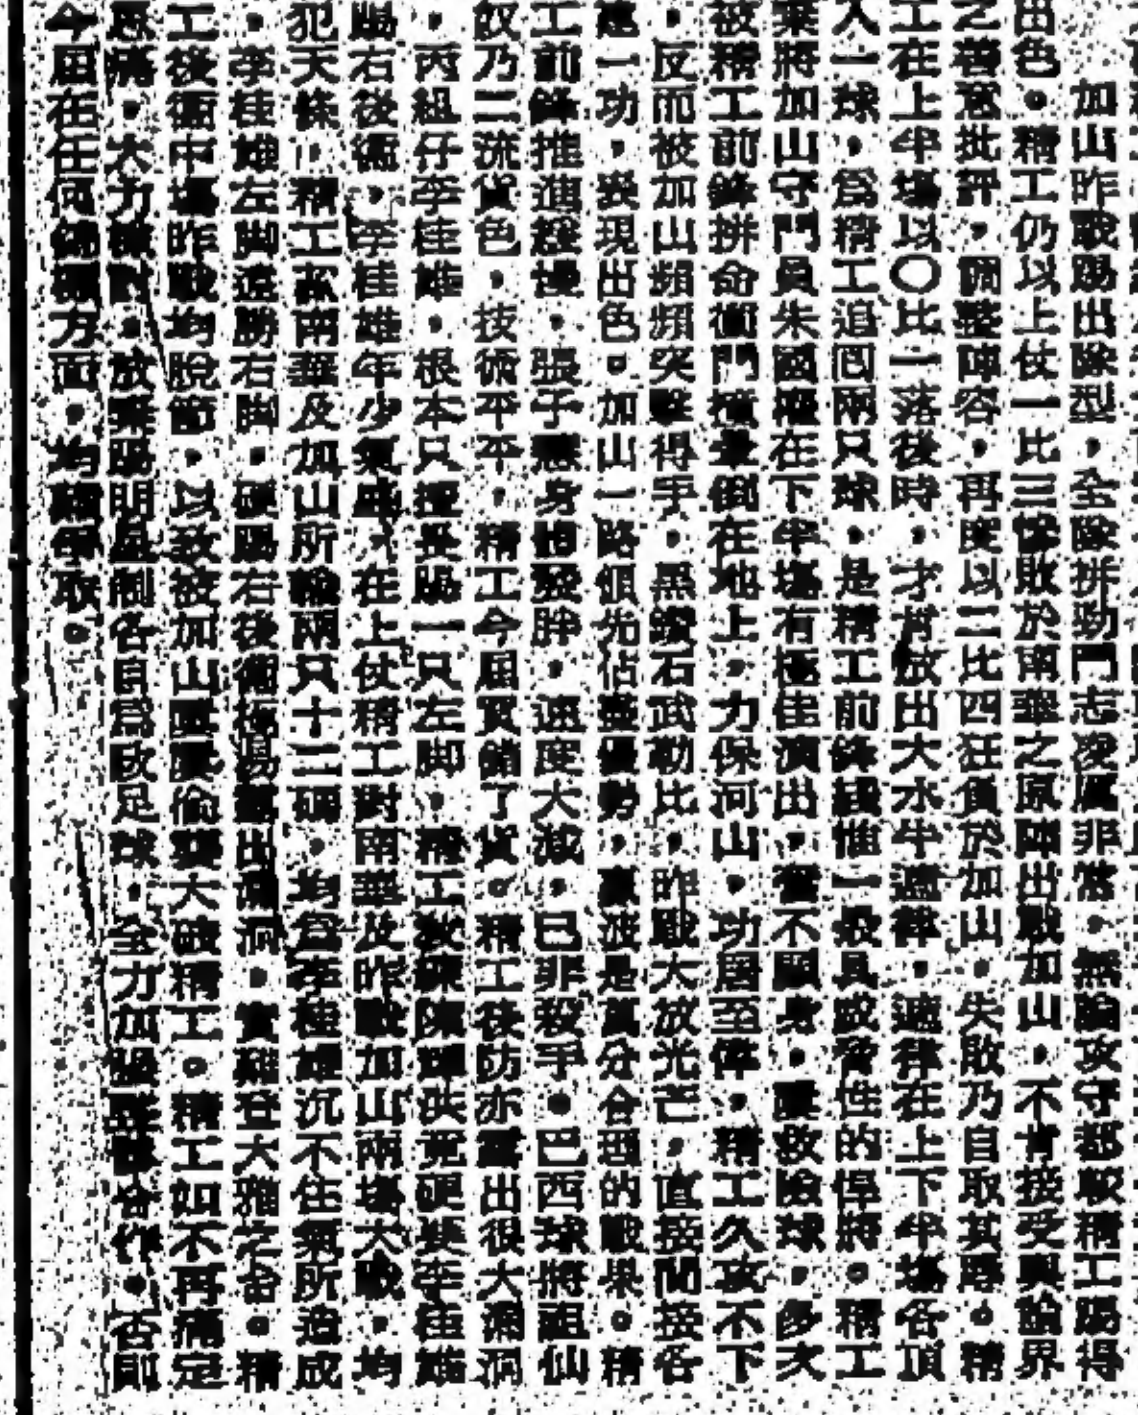 加山昨戰踢出隊型，全隊拼勁鬥志凌厲非常，無論攻守都較精工踢得
出色。精工仍以上仗一比三慘敗於南華之原陣出戰加山，不肯接受輿論界
之善意批評，調整陣容，再度以二比四狂負於加山，失敗乃自取其辱。精
工在上半場以〇比一落後時，才肯放出大水牛遮韓，遮韓在上下半場各頂
入一球，爲精工追回兩只球，是精工前鋒綫惟一最具威脅性的悍將。精工
將加山守門員朱國權在下半場有極佳演出，奮不顧身，屢救險球，多次
被精工前鋒拼命衝門撞暈倒在地上，力保河山，功居至偉，精工久攻不下
，反而被加山頻頻突擊得手，黑鑽石武勒比，昨戰大放光芒，直接間接各
建一功，表現出色。加山一路領先佔盡優勢，贏波是萬分合理的戰果。精
工前鋒推進緩慢，張子慧身體發胖，速度大減，已非殺手。巴西球將祖仙
奴乃二流貨色，技術平平，精工今屆買錯了貨。精工後防亦露出很大漏洞
，丙組仔李桂雄，根本只擅長踢一只左脚，精工教練陳輝洪竟硬要李桂雄
踢右後衞，李桂雄年少氣盛，在上仗精工對南華及昨戰加山兩場大戰，均
犯天條，精工於南華及加山所輸兩只十二碼，均爲李桂雄沉不住氣所造成
，李桂雄左脚遠勝右脚，硬踢右後衞極易露出漏洞，實難登大雅之台。精
工後衞中場昨戰均脫節，以致被加山屢屢偷襲大破精工。精工如不再痛定
思痛，大力檢討，放棄踢明星制各自爲政足球，全力加強整隊合作，否則
今屆在任何錦標方面，均難爭取。